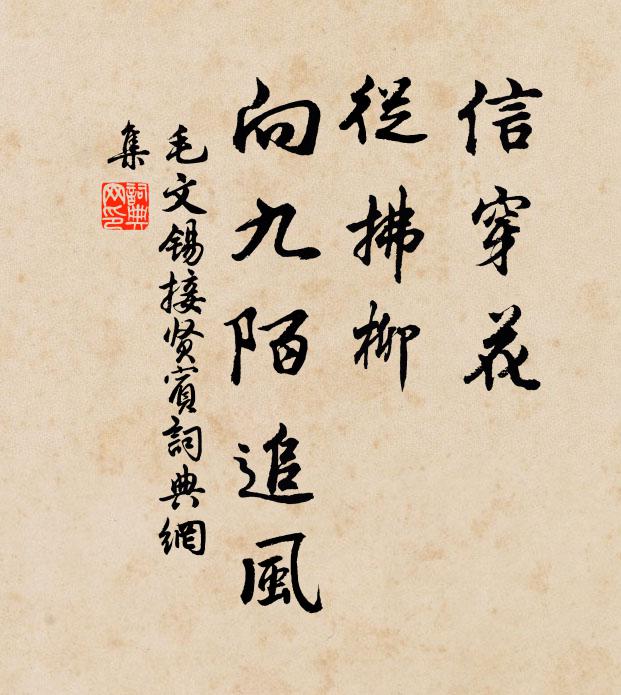 信穿花
從拂柳
向九陌追風
毛文锡接贤賓詞典網
集
詞典网印